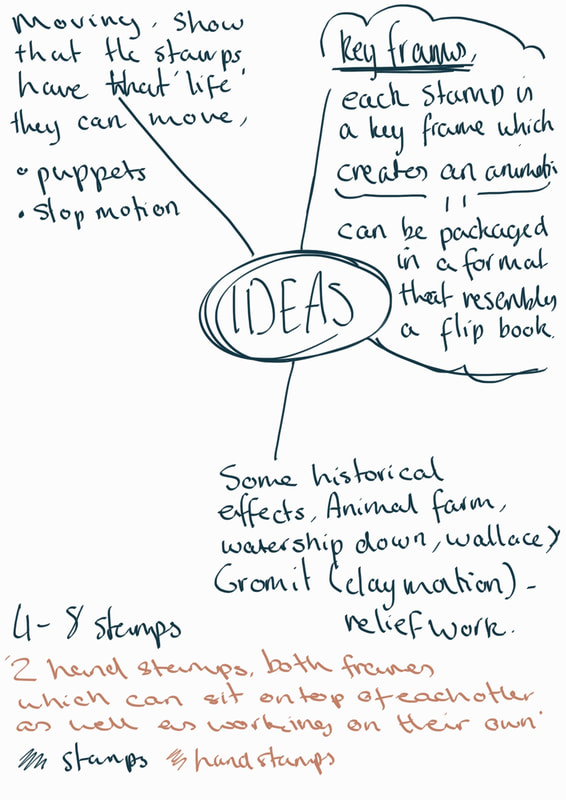 Moving, show
that the stamps
have that 'life'
they can move,
• puppets
• stop motion
key frames,
each stamp is
a key frame which
creates an animati
can be packaged
in a format
that resembles
a flip book.
IDEAS
Some historical
effects, Animal farm,
watership down, wallace &
Gromit (claymation) -
relief work.
4-8 stamps
'2 hand stamps, both frames
which can sit on top of each other
as well as working on their own'
stamps handstamps